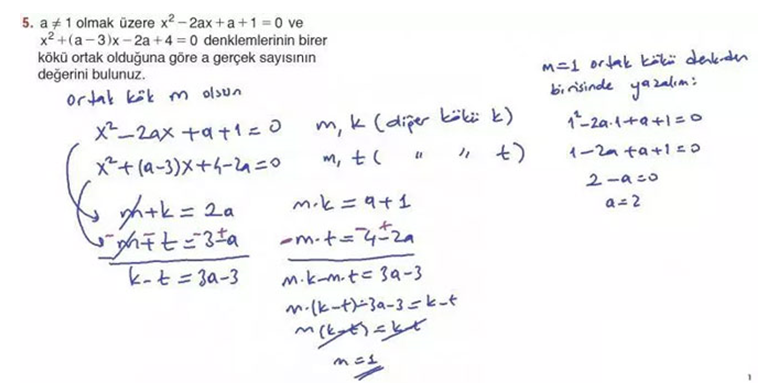 5. a ≠ 1 olmak üzere x² – 2ax + a + 1 = 0 ve
x² + (a – 3)x – 2a + 4 = 0 denklemlerinin birer
kökü ortak olduğuna göre a gerçek sayısının
değerini bulunuz.
ortak kök m olsun
x² – 2ax + a + 1 = 0 m, k (diğer kökü k)
x² + (a-3)x + 4 - 2a = 0 m, t ( " " t)
m + k = 2a
- m + t = 3 - a
k - t = 3a - 3
m·k = a + 1
- m·t = 4 - 2a
m·k - m·t = 3a - 3
m·(k-t) = 3a - 3 = k - t
m(k-t) = k-t
m = 1
m=1 ortak kökü denklemden
birisinde yazalım:
1² - 2a·1 + a + 1 = 0
1 - 2a + a + 1 = 0
2 - a = 0
a = 2
1